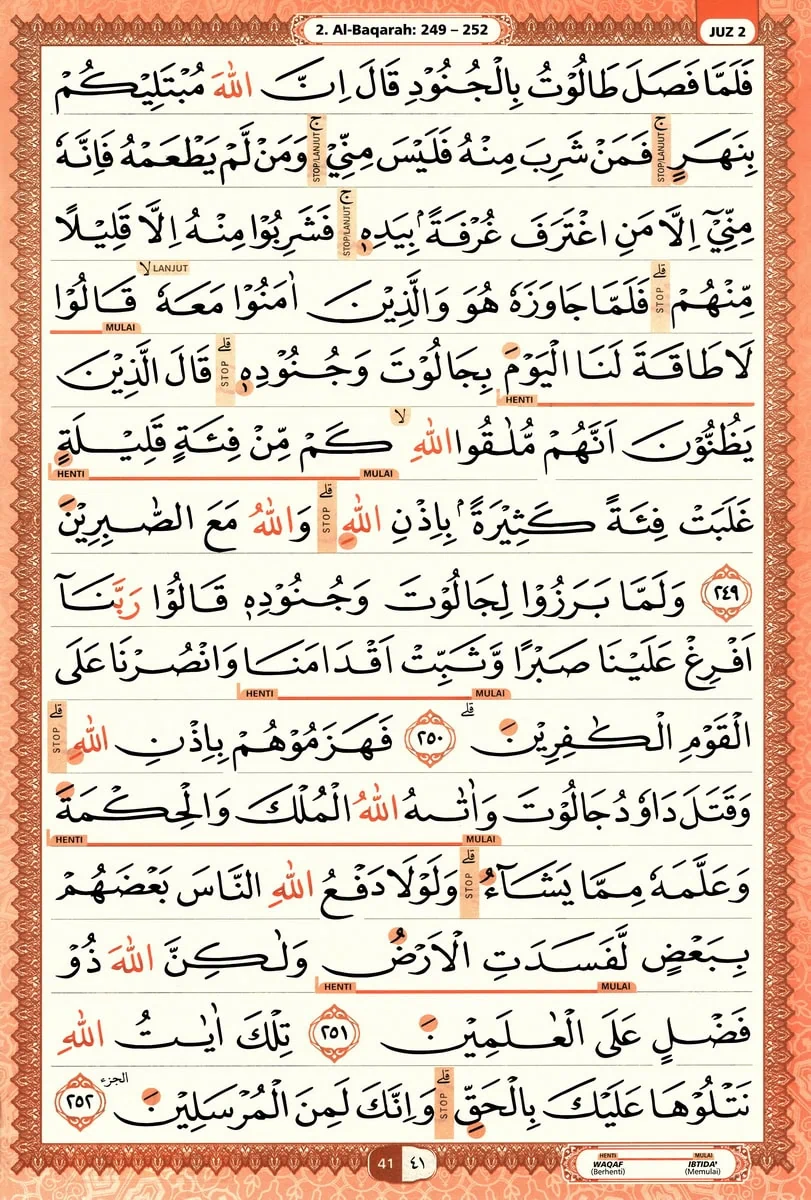 2. Al-Baqarah: 249 – 252
JUZ 2
فَلَمَّا فَصَلَ طَالُوْتُ بِالْجُنُوْدِ قَالَ اِنَّ اللّٰهَ مُبْتَلِيْكُمْ
بِنَهَرٍ ۚ STOP/LANJUT فَمَنْ شَرِبَ مِنْهُ فَلَيْسَ مِنِّيْ ۚ STOP/LANJUT وَمَنْ لَّمْ يَطْعَمْهُ فَاِنَّهٗ
مِنِّيْٓ اِلَّا مَنِ اغْتَرَفَ غُرْفَةً ۢ بِيَدِهٖ ۚ STOP/LANJUT فَشَرِبُوْا مِنْهُ اِلَّا قَلِيْلًا
مِّنْهُمْ ۗ STOP فَلَمَّا جَاوَزَهٗ هُوَ وَالَّذِيْنَ اٰمَنُوْا مَعَهٗ ۙ LANJUT قَالُوْا
MULAI
لَا طَاقَةَ لَنَا الْيَوْمَ بِجَالُوْتَ وَجُنُوْدِهٖ ۗ STOP قَالَ الَّذِيْنَ
HENTI
يَظُنُّوْنَ اَنَّهُمْ مُّلٰقُوا اللّٰهِ ۙ كَمْ مِّنْ فِئَةٍ قَلِيْلَةٍ
MULAI HENTI
غَلَبَتْ فِئَةً كَثِيْرَةً ۢ بِاِذْنِ اللّٰهِ ۗ STOP وَاللّٰهُ مَعَ الصّٰبِرِيْنَ
٢٤٩ وَلَمَّا بَرَزُوْا لِجَالُوْتَ وَجُنُوْدِهٖ قَالُوْا رَبَّنَآ
اَفْرِغْ عَلَيْنَا صَبْرًا وَّثَبِّتْ اَقْدَامَنَا وَانْصُرْنَا عَلَى
MULAI HENTI
الْقَوْمِ الْكٰفِرِيْنَ ۗ ٢٥٠ فَهَزَمُوْهُمْ بِاِذْنِ اللّٰهِ ۗ STOP
وَقَتَلَ دَاوٗدُ جَالُوْتَ وَاٰتٰىهُ اللّٰهُ الْمُلْكَ وَالْحِكْمَةَ
MULAI HENTI
وَعَلَّمَهٗ مِمَّا يَشَاۤءُ ۗ STOP وَلَوْلَا دَفْعُ اللّٰهِ النَّاسَ بَعْضَهُمْ
بِبَعْضٍ لَّفَسَدَتِ الْاَرْضُ وَلٰكِنَّ اللّٰهَ ذُوْ
MULAI HENTI
فَضْلٍ عَلَى الْعٰلَمِيْنَ ٢٥١ تِلْكَ اٰيٰتُ اللّٰهِ
نَتْلُوْهَا عَلَيْكَ بِالْحَقِّ ۗ STOP وَاِنَّكَ لَمِنَ الْمُرْسَلِيْنَ الجزء ٢٥٢
41 ٤١
HENTI MULAI
WAQAF IBTIDA'
(Berhenti) (Memulai)